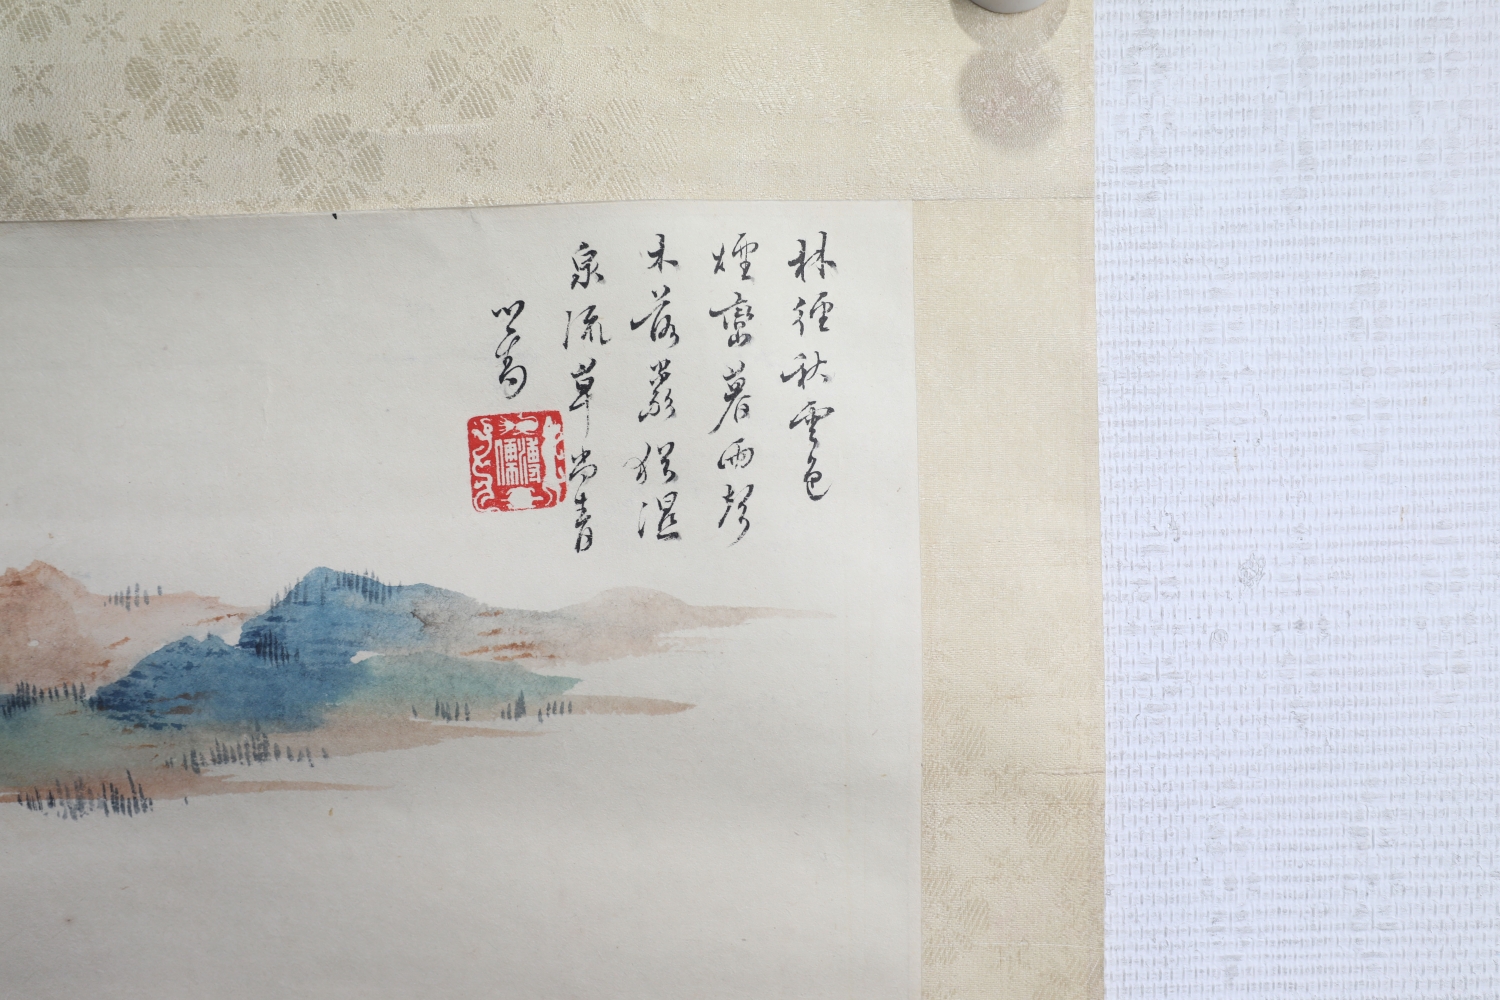 林徑秋雲色
煙巒暮雨聲
木落巖猶溼
泉流草尚青
心畬